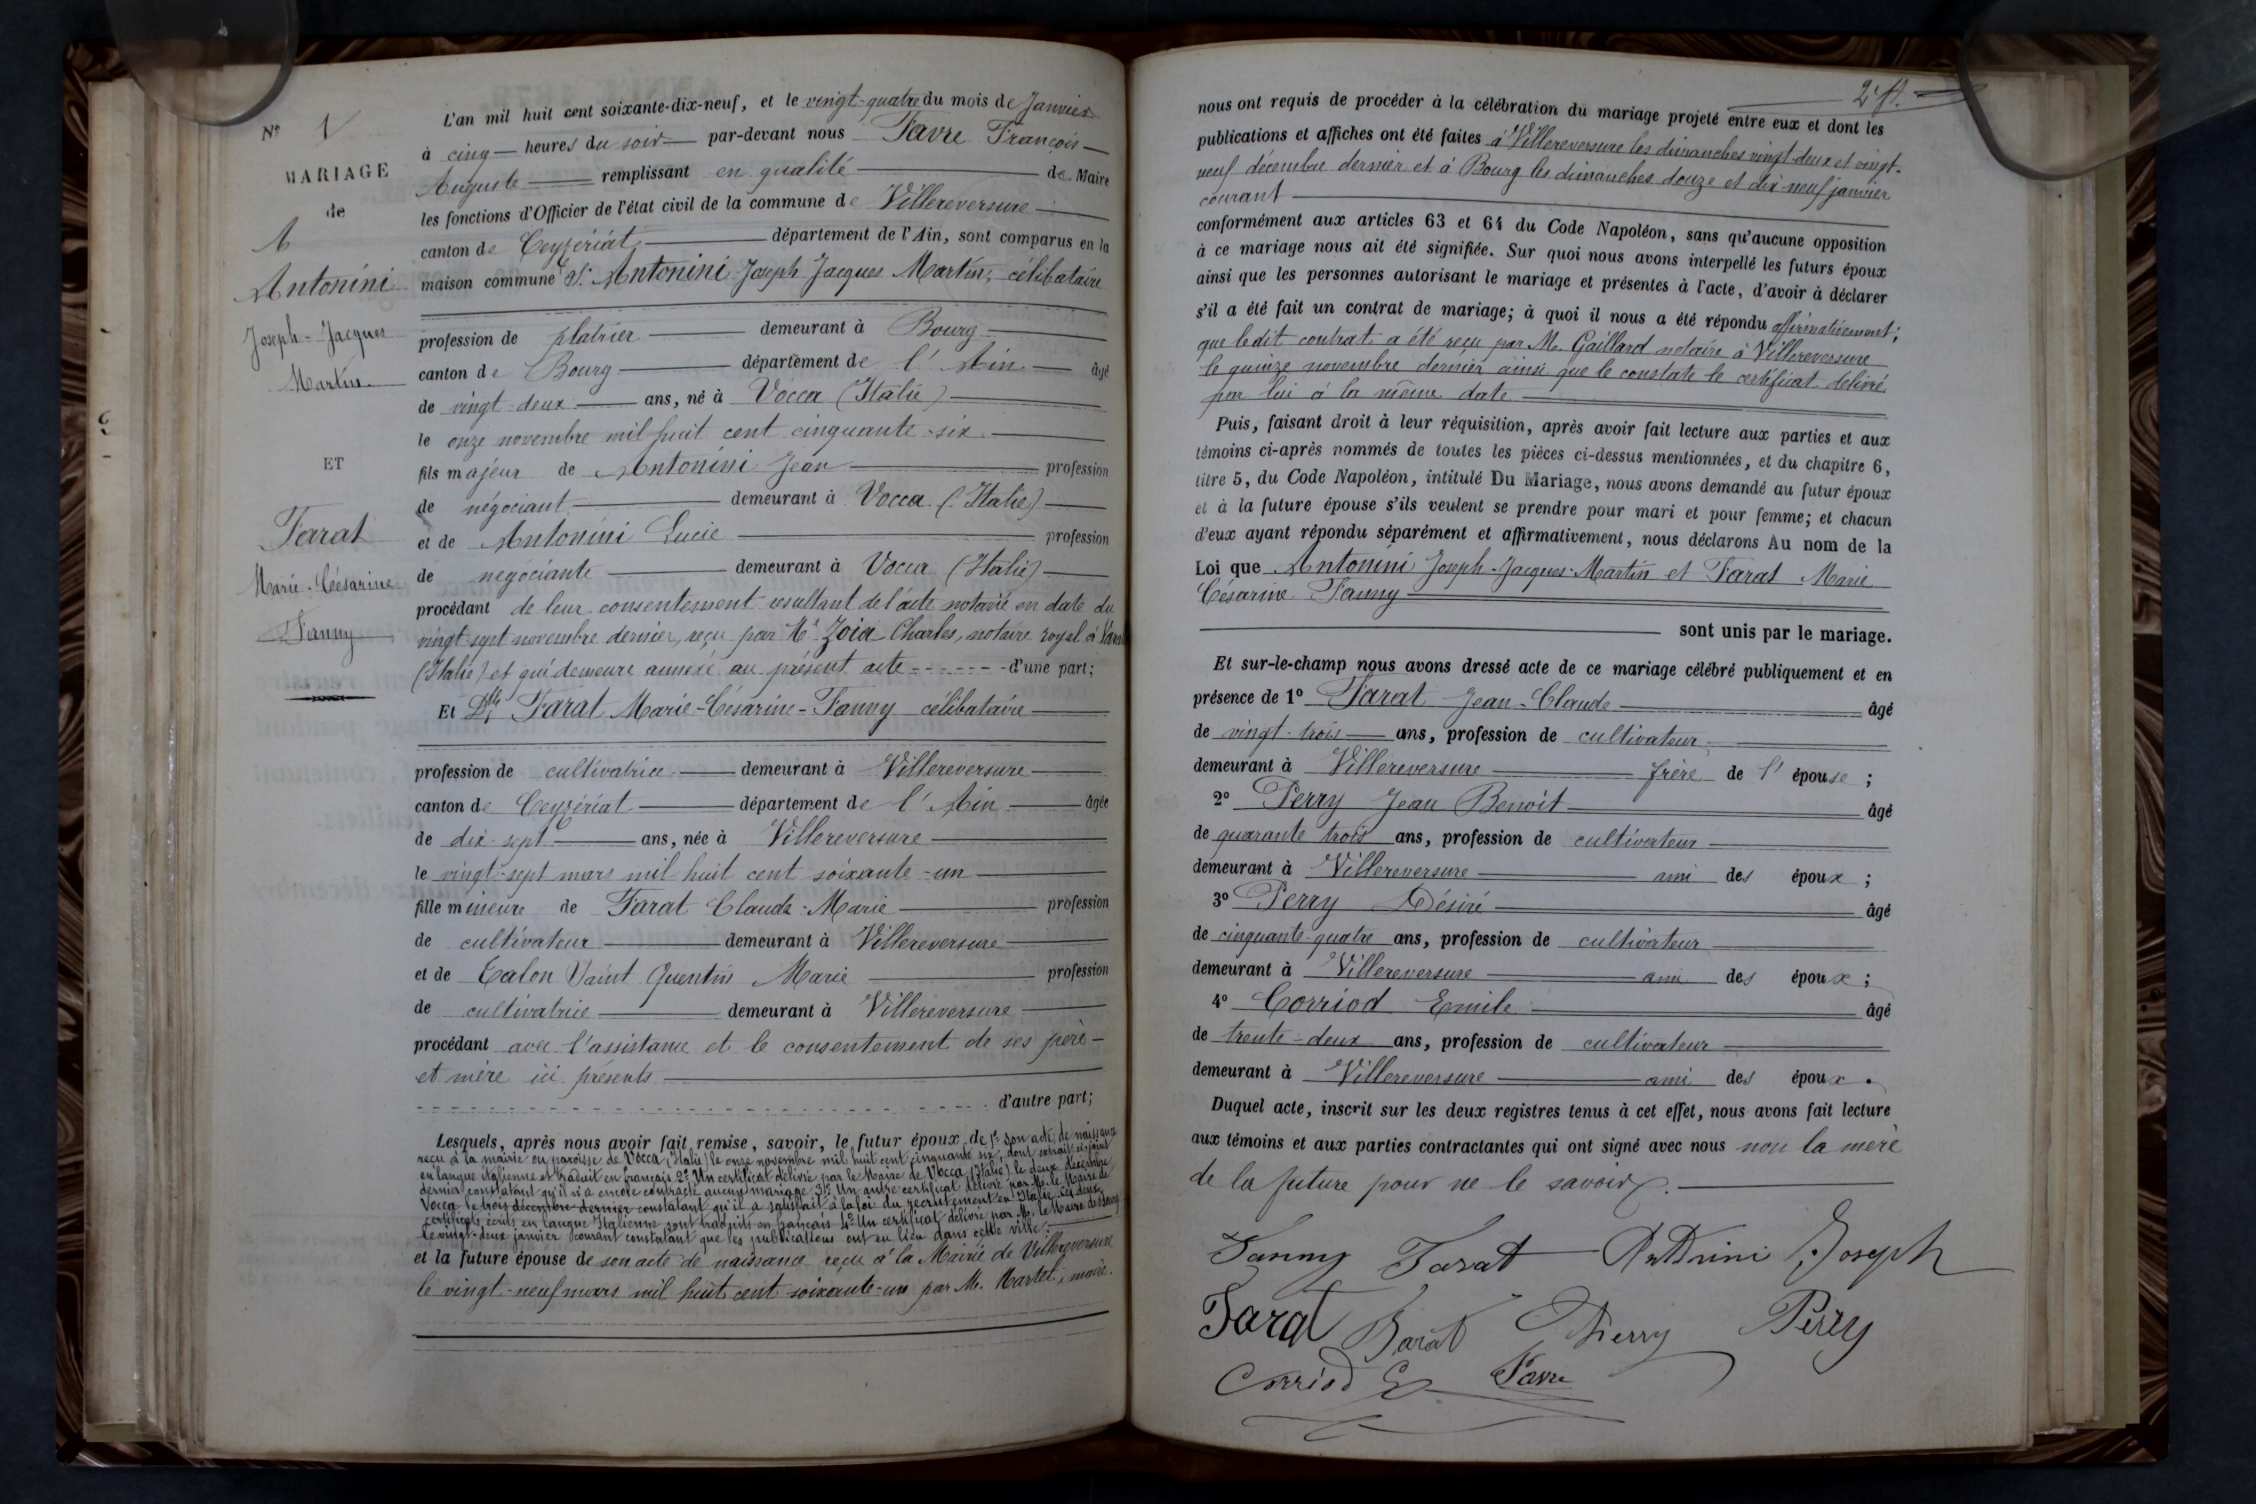 N° 1
MARIAGE
de
Antonini
Joseph-Jacques
Martin
ET
Farat
Marie-Céesarine
Fanny
L'an mil huit cent soixante-dix-neuf, et le vingt-quatre du mois de Janvier
à cinq heures du soir par-devant nous Favre François
Auguste remplissant en qualité de Maire
les fonctions d'Officier de l'état civil de la commune de Villereversure
canton de Ceyzériat département de l'Ain, sont comparus en la
maison commune Sr. Antonini Joseph Jacques Martin, célibataire
profession de platrier demeurant à Bourg
canton de Bourg département de l'Ain âgé
de vingt-deux ans, né à Vocca (Italie)
le onze novembre mil huit cent cinquante-six
fils majeur de Antonini Jean profession
de négociant demeurant à Vocca (Italie)
et de Antonini Lucie profession
de négociante demeurant à Vocca (Italie)
procédant de leur consentement resultant de l'acte notarié en date du
vingt sept novembre dernier, reçu par Me Zoia Charles, notaire royal à
(Italie) et qui demeure annexé au présent acte d'une part;
Et Dlle Farat Marie-Césarine-Fanny célibataire
profession de cultivatrice demeurant à Villereversure
canton de Ceyzériat département de l'Ain âgée
de dix-sept ans, née à Villereversure
le vingt-sept mars mil huit cent soixante-un
fille mineure de Farat Claude-Marie profession
de cultivateur demeurant à Villereversure
et de Calon Saint Quentin Marie profession
de cultivatrice demeurant à Villereversure
procédant avec l'assistance et le consentement de ses père
et mère ici présents
d'autre part;
Lesquels, après nous avoir fait remise, savoir, le futur époux de 1° son acte de naissance
reçu à la mairie ou paroisse de Vocca (Italie) le onze novembre mil huit cent cinquante six, dont extrait ci-joint
en langue italienne et traduit en français 2° Un certificat délivré par le Maire de Vocca (Italie) le deux décembre
dernier constatant qu'il n'a encore contracté aucun mariage 3° Un autre certificat délivré par Mr. le Maire de
Vocca le trois décembre dernier constatant qu'il a satisfait à la loi du recrutement en Italie. Ces deux
certificats écrits en langue Italienne sont traduits en français 4° Un certificat délivré par Mr. le Maire de Bourg
le vingt-deux janvier courant constatant que les publications ont eu lieu dans cette ville.
et la future épouse de son acte de naissance reçu à la Mairie de Villereversure
le vingt-neuf mars mil huit cent soixante-un par Mr. Martel, maire.
2e f.
nous ont requis de procéder à la célébration du mariage projeté entre eux et dont les
publications et affiches ont été faites à Villereversure les dimanches vingt-deux et vingt-
neuf décembre dernier et à Bourg les dimanches douze et dix-neuf janvier
courant
conformément aux articles 63 et 64 du Code Napoléon, sans qu'aucune opposition
à ce mariage nous ait été signifiée. Sur quoi nous avons interpellé les futurs époux
ainsi que les personnes autorisant le mariage et présentes à l'acte, d'avoir à déclarer
s'il a été fait un contrat de mariage; à quoi il nous a été répondu affirmativement;
que ledit contrat a été reçu par Me. Gaillard notaire à Villereversure
le quinze novembre dernier ainsi que le constate le certificat délivré
par lui à la même date
Puis, faisant droit à leur réquisition, après avoir fait lecture aux parties et aux
témoins ci-après nommés de toutes les pièces ci-dessus mentionnées, et du chapitre 6,
titre 5, du Code Napoléon, intitulé Du Mariage, nous avons demandé au futur époux
et à la future épouse s'ils veulent se prendre pour mari et pour femme; et chacun
d'eux ayant répondu séparément et affirmativement, nous déclarons Au nom de la
Loi que Antonini Joseph-Jacques-Martin et Farat Marie
Césarine Fanny
sont unis par le mariage.
Et sur-le-champ nous avons dressé acte de ce mariage célébré publiquement et en
présence de 1° Farat Jean-Claude âgé
de vingt-trois ans, profession de cultivateur
demeurant à Villereversure frère de l'épouse;
2° Perry Jean Benoit âgé
de quarante trois ans, profession de cultivateur
demeurant à Villereversure ami des époux;
3° Perry Désiré âgé
de cinquante-quatre ans, profession de cultivateur
demeurant à Villereversure ami des époux;
4° Corriod Emile âgé
de trente-deux ans, profession de cultivateur
demeurant à Villereversure ami des époux.
Duquel acte, inscrit sur les deux registres tenus à cet effet, nous avons fait lecture
aux témoins et aux parties contractantes qui ont signé avec nous non la mère
de la future pour ne le savoir.
Fanny Farat Antonini Joseph
Farat Farat Perry
Corriod E Favre